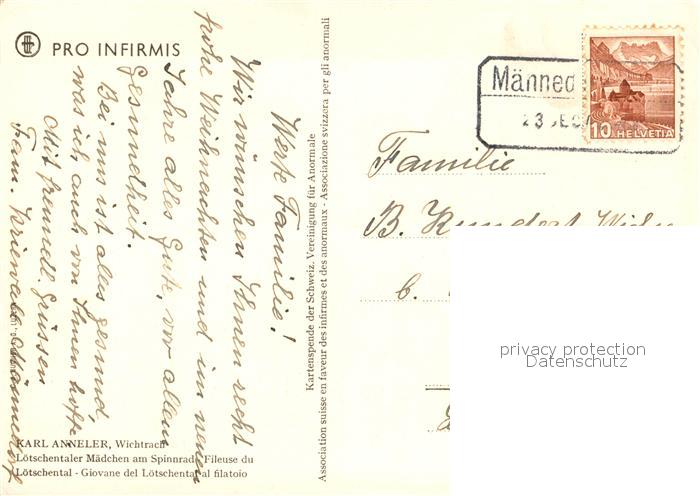 PRO INFIRMIS
Werte Familie!
Wir wünschen Ihnen recht
frohe Weihnachten und im neuen
Jahre alles Gute, vor allem
Gesundheit.
Bei uns ist alles gesund,
was ich auch von Ihnen hoffe
Mit freundl. Grüssen
Fam.
KARL ANNELER, Wichtrach
Lötschentaler Mädchen am Spinnrad - Fileuse du
Lötschental - Giovane del Lötschental al filatoio
Kartenspende der Schweiz. Vereinigung für Anormale
Association suisse en faveur des infirmes et des anormaux - Associazione svizzera per gli anormali
Männed
23
10 HELVETIA
Familie
B.
privacy protection
Datenschutz